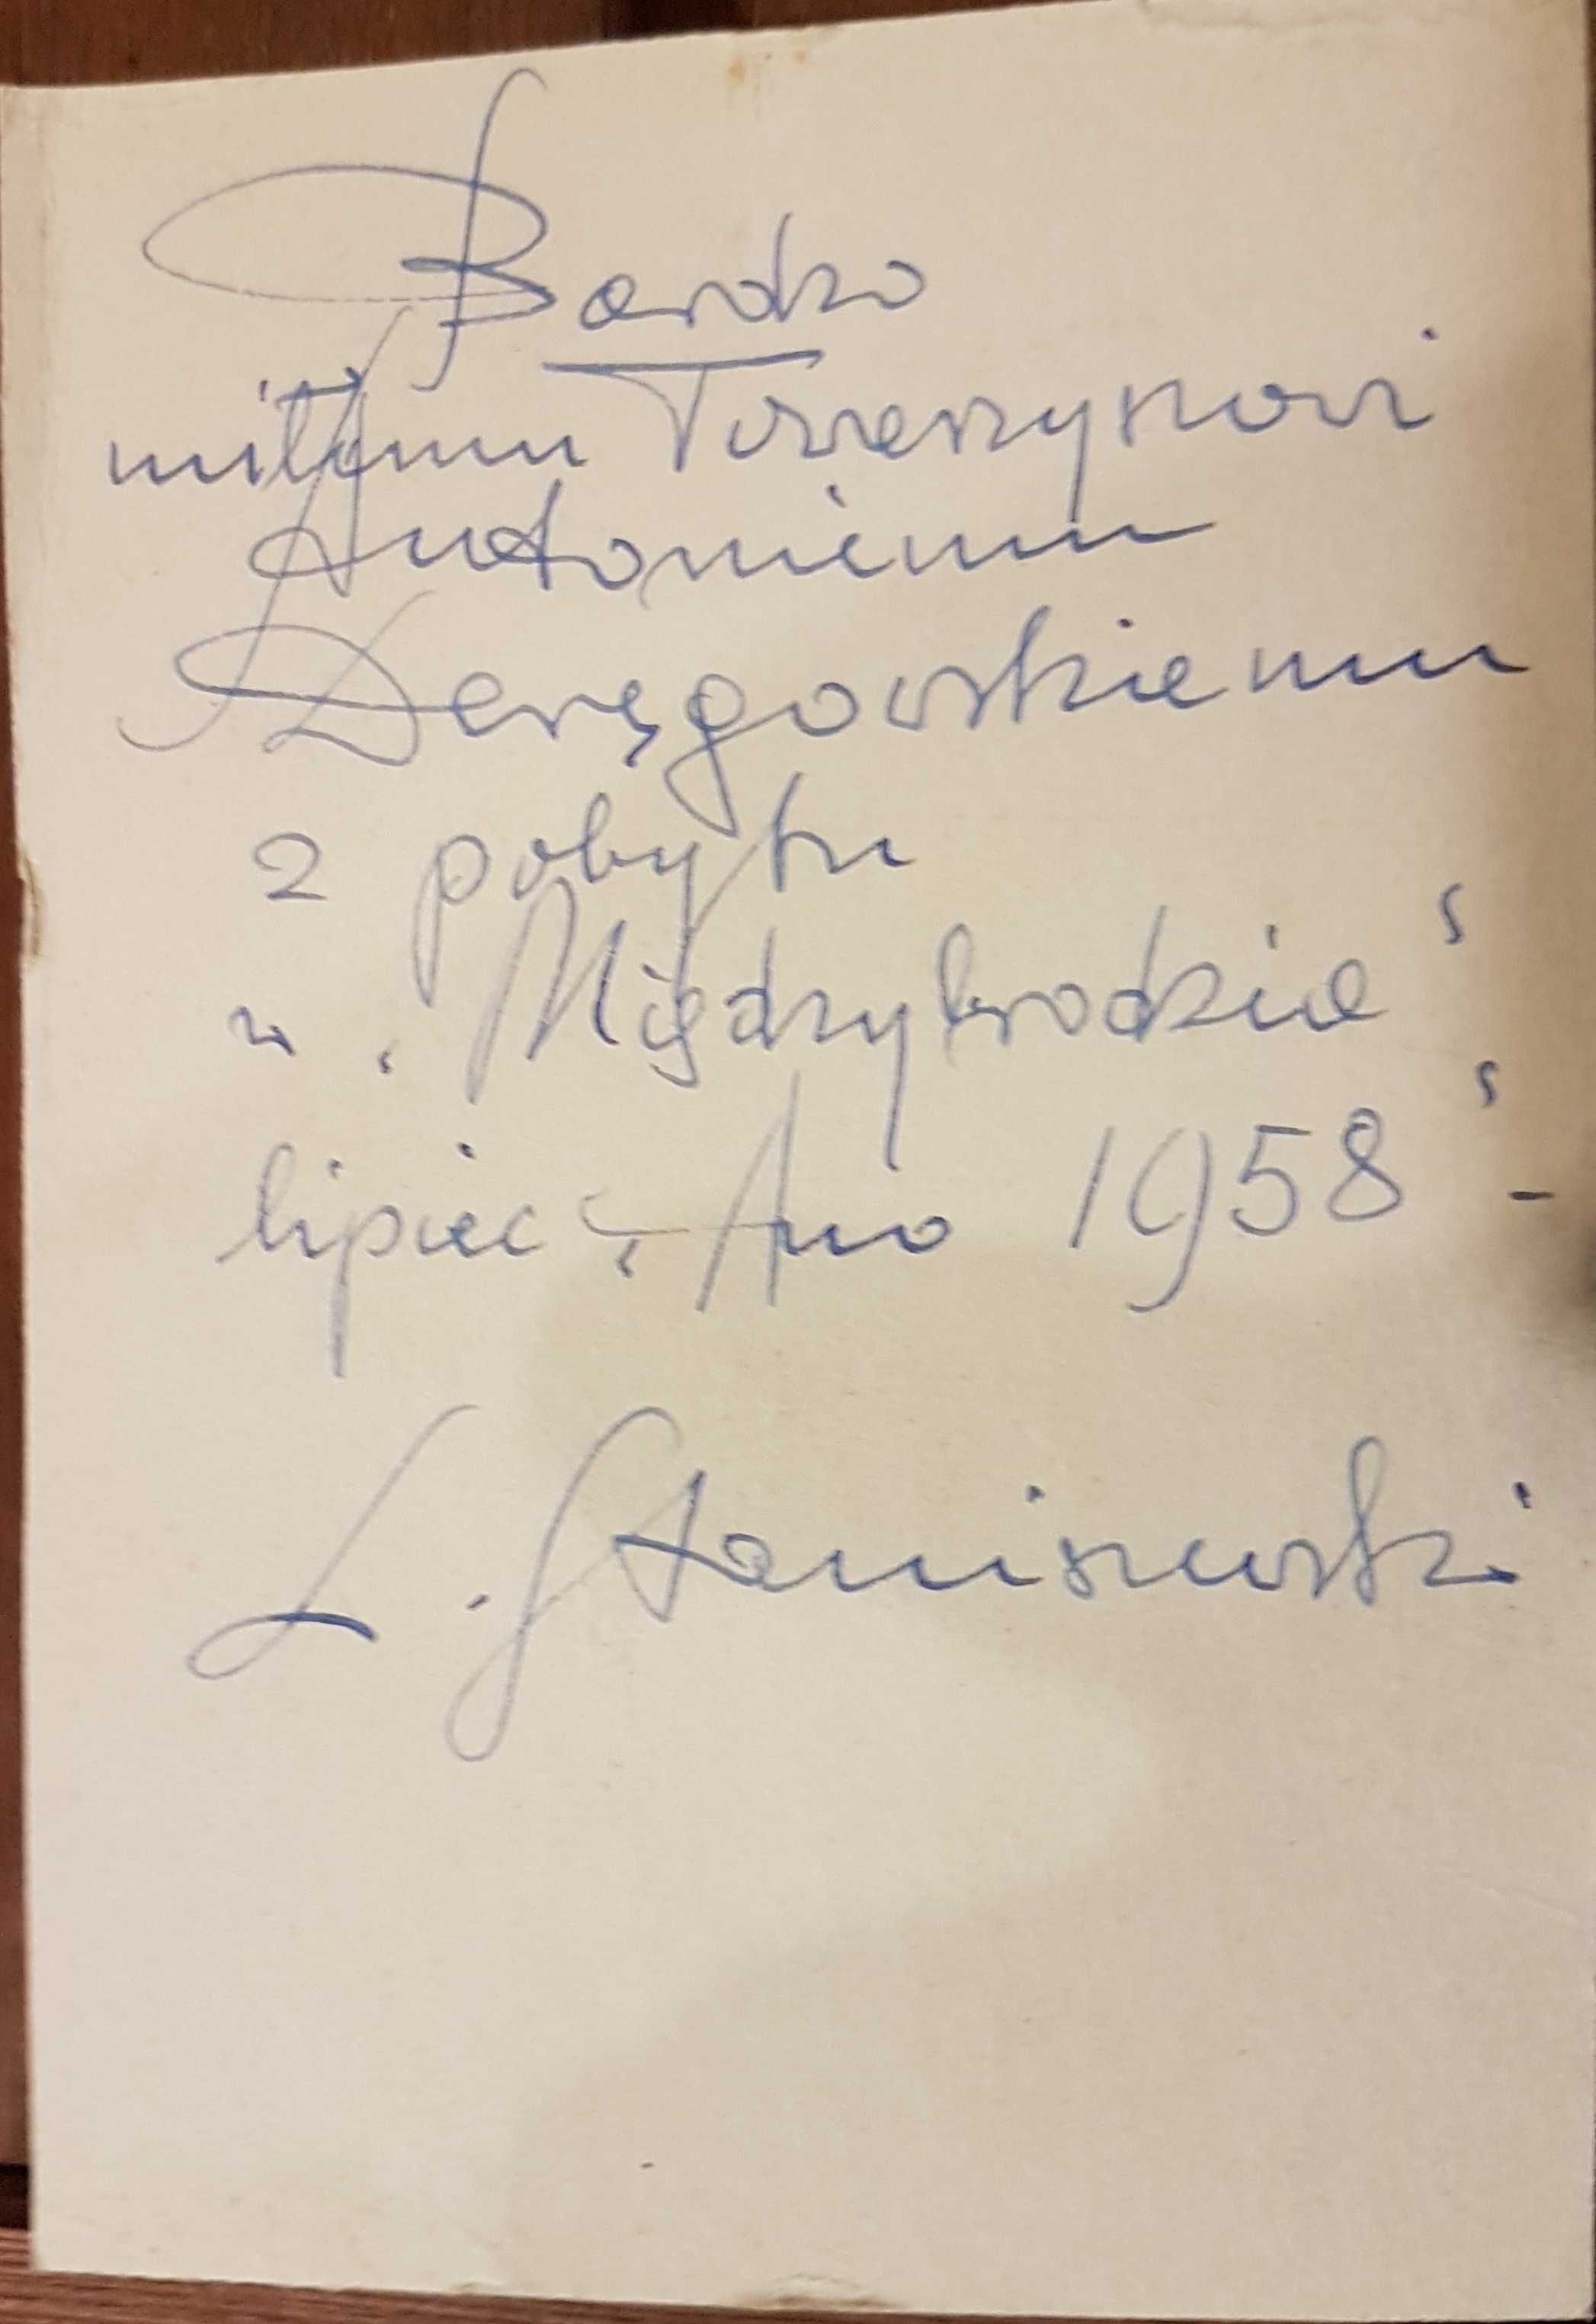 Bardzo
miłemu Towarzyszowi
Antoniemu
Deręgowskiemu
z pobytu
w „Międzybrodzie"
lipiec „Ano 1958" -
L. Staniszewski